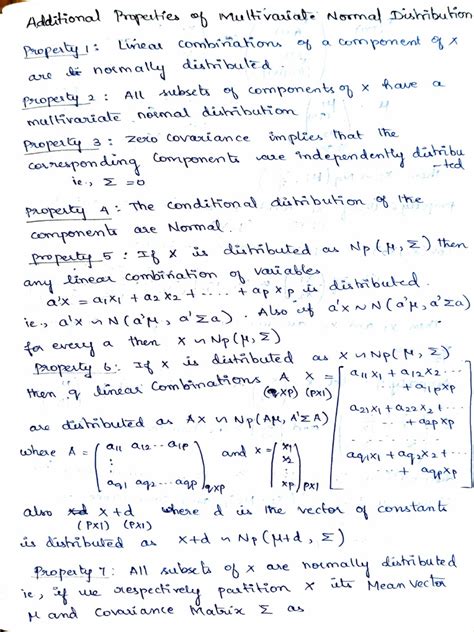 Additional Properties of Multivariate Normal Distribution
Property 1: Linear combinations of a component of x
are normally distributed.
Property 2: All subsets of components of x have a
multivariate normal distribution
Property 3: Zero covariance implies that the
corresponding components are independently distribu
-ted
ie., Σ = 0
Property 4: The conditional distribution of the
components are Normal.
Property 5: If x is distributed as Np(μ, Σ) then
any linear combination of variables
a'x = a1x1 + a2x2 + ..... + apxp is distributed.
ie., a'x ~ N(a'μ, a'Σa). Also if a'x ~ N(a'μ, a'Σa)
for every a then x ~ Np(μ, Σ)
Property 6: If x is distributed as x ~ Np(μ, Σ)
then q linear combinations A x =
(q×p) (p×1)
[a11x1 + a12x2 + ...
... + a1pxp
a21x1 + a22x2 + ...
... + a2pxp
aq1x1 + aq2x2 + ...
... + aqpxp] p×1
are distributed as Ax ~ Np(Aμ, A'ΣA)
where A = (a11 a12 ... a1p
⋮
aq1 aq2 ... aqp) q×p and x = (x1
x2
⋮
xp) p×1
also x + d where d is the vector of constants
(p×1) (p×1)
is distributed as x+d ~ Np(μ+d, Σ)
Property 7: All subsets of x are normally distributed
ie, if we respectively partition x its Mean vector
μ and Covariance Matrix Σ as